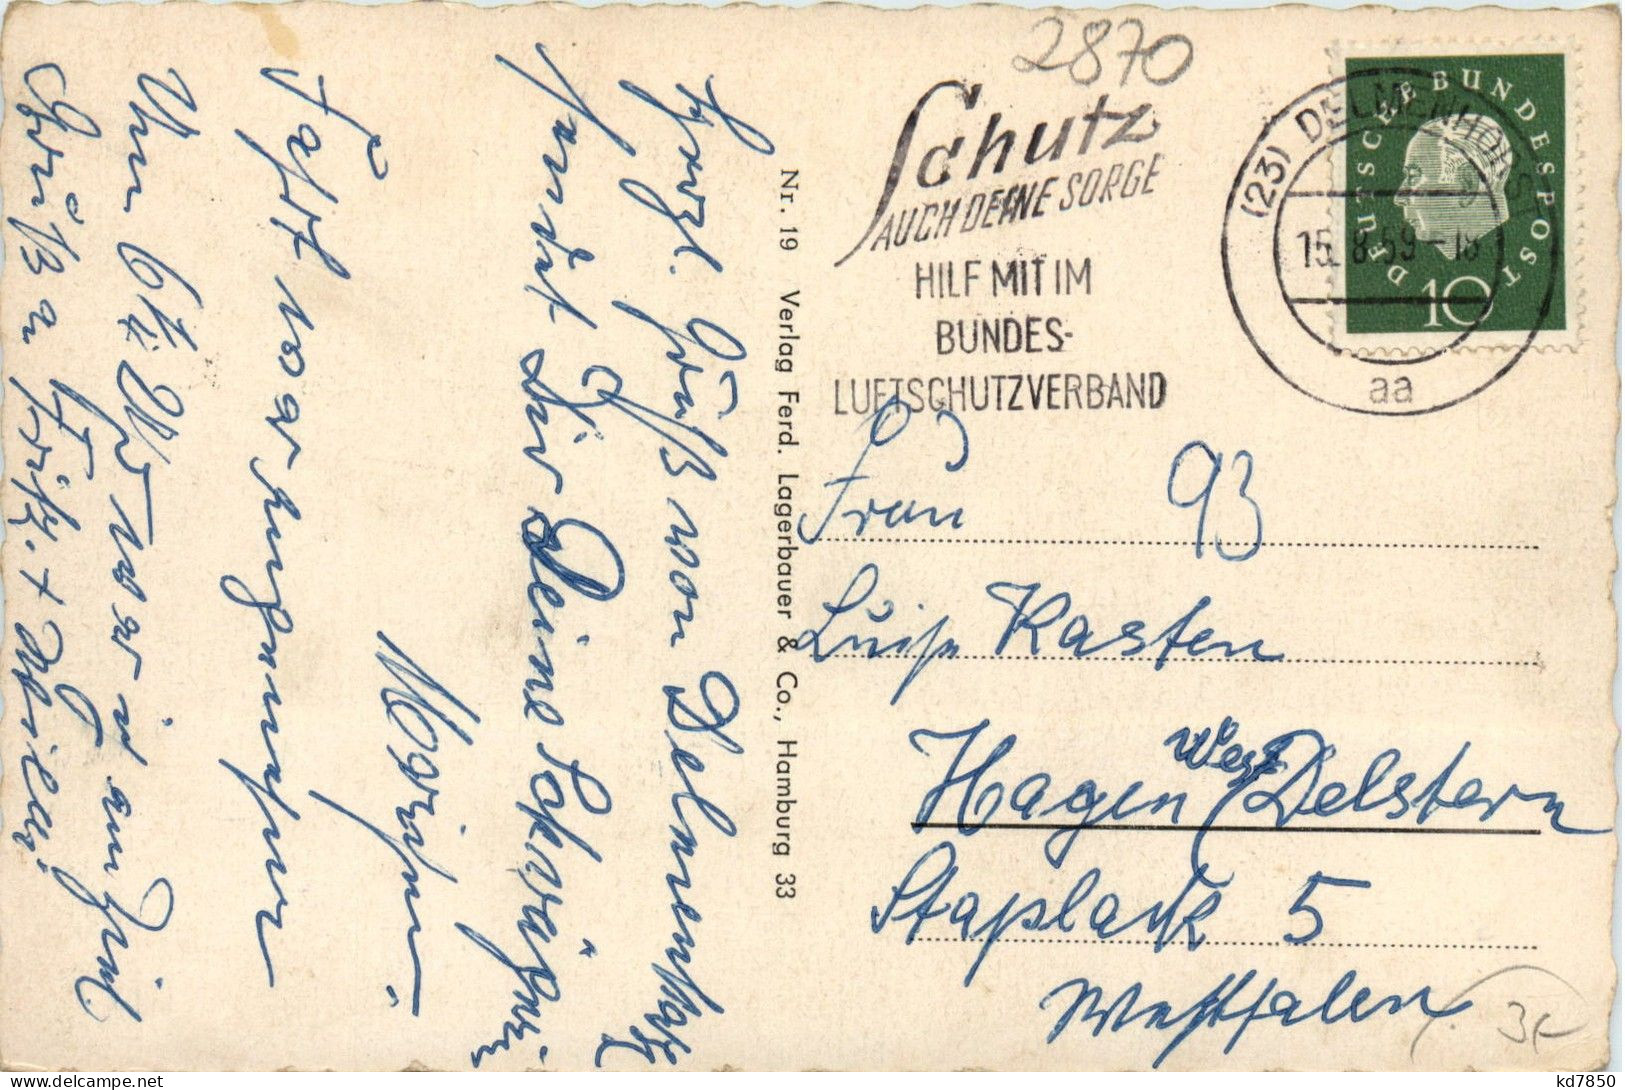 2870
Schutz
AUCH DEINE SORGE
HILF MIT IM
BUNDES-
LUFTSCHUTZVERBAND
(23) DELMENHORST
15. 8. 59 - 18
aa
DEUTSCHE BUNDESPOST
10
Herzl. Grüße von Delmenhorst
sendet Dir Deine Schwägerin
Fahrt war angenehm
Um 6 Uhr war ich am Ziel
Grüße an Fritz +
Nr. 19 Verlag Ferd. Lagerbauer & Co., Hamburg 33
Frau 93
Luise Kasten
Hagen West Delstern
Staplack 5
Westfalen
kd7850